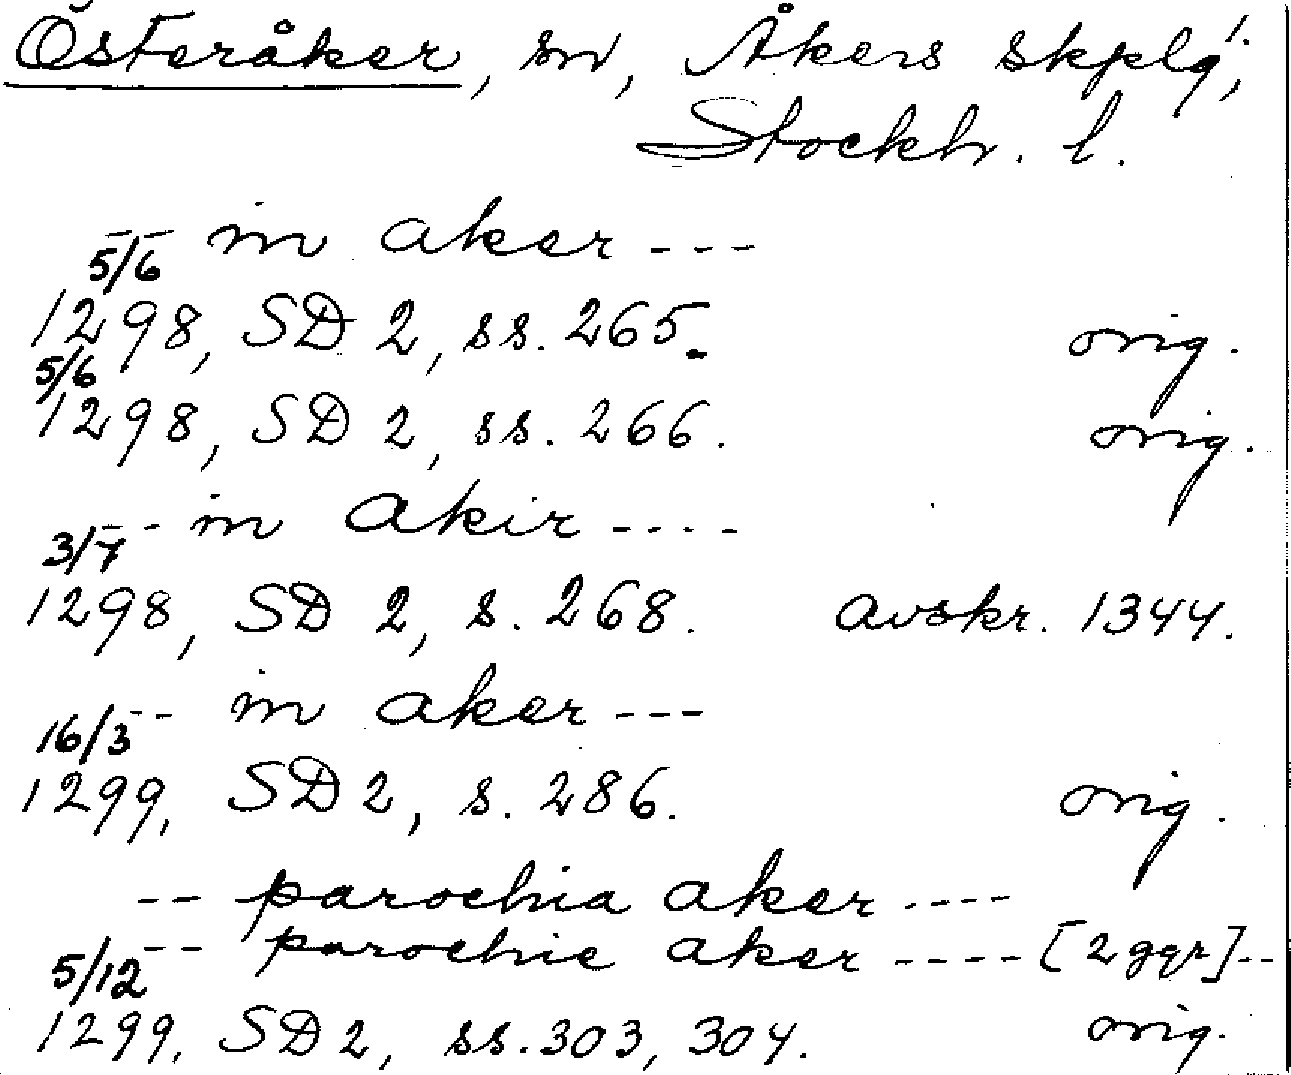 Österåker, sn, Åkers skplg;
Stockh. l.
-- in aker ---
5/6
1298, SD 2, ss. 265.    orig.
5/6
1298, SD 2, ss. 266.    orig.
--- in Akir ----
3/7
1298, SD 2, s. 268.    avskr. 1344.
-- in aker ---
16/3
1299, SD 2, s. 286.    orig.
-- parochia aker ----
-- parochie aker ---- [2 ggr]--
5/12
1299, SD 2, ss. 303, 304.    orig.